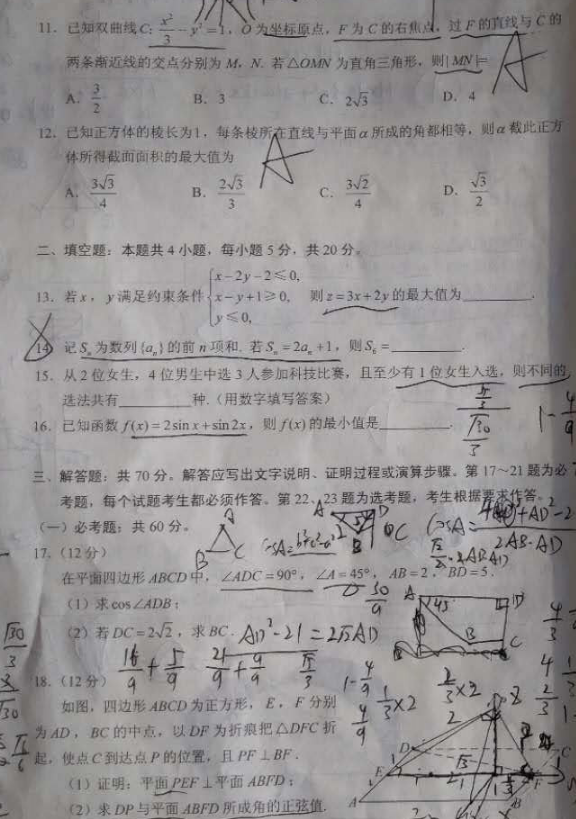 11. 已知双曲线C: x²/3 - y² = 1, O为坐标原点, F为C的右焦点, 过F的直线与C的
两条渐近线的交点分别为M, N. 若△OMN为直角三角形, 则|MN|=
A. 3/2 B. 3 C. 2√3 D. 4
A
12. 已知正方体的棱长为1, 每条棱所在直线与平面α所成的角都相等, 则α截此正方
体所得截面面积的最大值为
A
A. 3√3/4 B. 2√3/3 C. 3√2/4 D. √3/2
二、填空题: 本题共4小题, 每小题5分, 共20分。
13. 若x, y满足约束条件 {x-2y-2≤0, x-y+1≥0, y≤0, 则z=3x+2y的最大值为________.
14. 记Sₙ为数列{aₙ}的前n项和. 若Sₙ=2aₙ+1, 则S₆=________.
15. 从2位女生, 4位男生中选3人参加科技比赛, 且至少有1位女生入选, 则不同的
选法共有________种. (用数字填写答案)
16. 已知函数f(x)=2sin x+sin2x, 则f(x)的最小值是________.
√30/3
1-4/9
三、解答题: 共70分。解答应写出文字说明、证明过程或演算步骤。第17~21题为必
考题, 每个试题考生都必须作答。第22、23题为选考题, 考生根据要求作答。
(一) 必考题: 共60分。
A
B C
17. (12分)
2AB·AD
在平面四边形ABCD中, ∠ADC=90°, ∠A=45°, AB=2, BD=5.
(1) 求cos∠ADB;
30/9
A 45° D
B C
(2) 若DC=2√2, 求BC.
AD²-21=2√2AD
16/9+5/9 21/9+9/9
√30/3
18. (12分)
1-4/9 1/3×2
4/9
如图, 四边形ABCD为正方形, E, F分别
为AD, BC的中点, 以DF为折痕把△DFC折
起, 使点C到达点P的位置, 且PF⊥BF.
(1) 证明: 平面PEF⊥平面ABFD;
(2) 求DP与平面ABFD所成角的正弦值.
D C
E F
A B